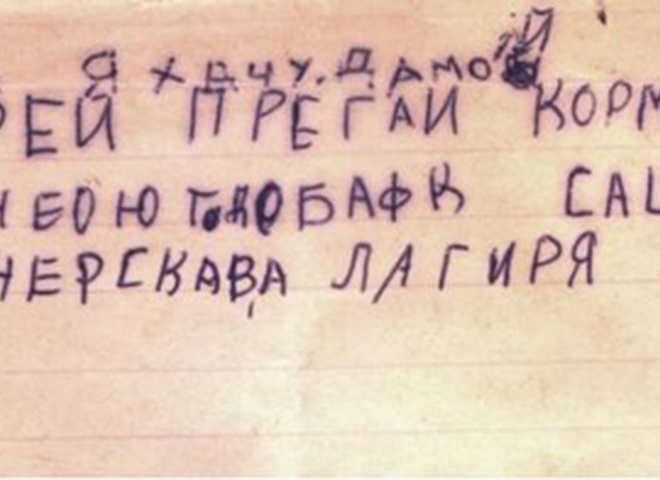 Я ХАЧУ. ДАМОЙ
РЕЙ ПРЕГАЙ КОРМ
НЕОЮ БАФК САЦ
НЕРСКАВА ЛАГИРЯ